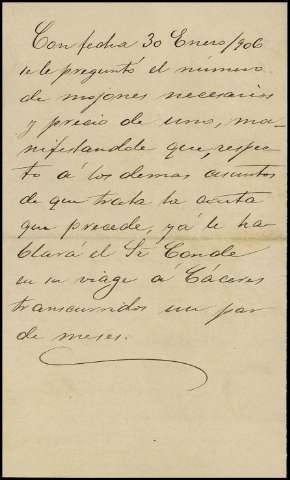 Con fecha 30 Enero/906
se le preguntó el número
de mojones necesarios
y precio de uno, ma-
nifestandole que, respec-
to á los demas asuntos
de que trata la carta
que precede, yá le ha-
blará el Sr Conde
en su viage á Cáceres
transcurridos un par
de meses.